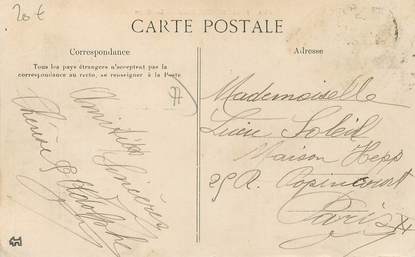 20€
CARTE POSTALE
Correspondance
Tous les pays étrangers n'acceptent pas la
correspondance au recto, se renseigner à la Poste
Adresse
Amitiés
Sincères
Mademoiselle
Soleil
Maison Hepp
25 R. Popincourt
Paris